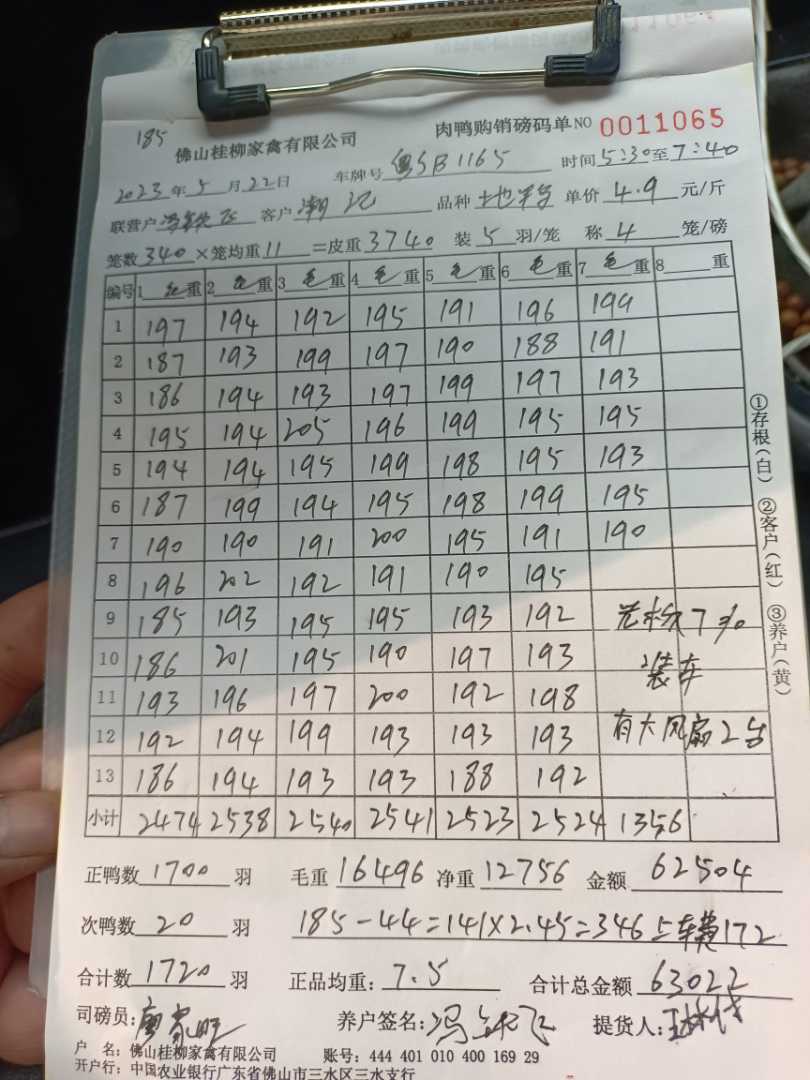 185
佛山桂柳家禽有限公司 肉鸭购销磅码单 NO 0011065
2023年5月22日 车牌号 粤SB1165 时间5:30至7:40
联营户 冯铁飞 客户 潮记 品种 单价 4.9 元/斤
笼数 340 ×笼均重 11 =皮重 3740 装 5 羽/笼 称 4 笼/磅
编号 1毛重 2毛重 3毛重 4毛重 5毛重 6毛重 7毛重 8 重
1 197 194 192 195 191 196 199
2 187 193 199 197 190 188 191
3 186 194 193 197 199 197 193
4 195 194 205 196 199 195 195
5 194 194 195 199 198 195 193
6 187 199 194 195 198 199 195
7 190 190 191 200 195 191 190
8 196 202 192 191 190 195
9 185 193 195 195 193 192 7
10 186 201 195 190 197 193 装车
11 193 196 197 200 192 198
12 192 194 199 193 193 193 有大风扇2台
13 186 194 193 193 188 192
小计 2474 2538 2540 2541 2523 2524 1356
①存根(白) ②客户(红) ③养户(黄)
正鸭数 1700 羽 毛重 16496 净重 12756 金额 62504
次鸭数 20 羽 185-44=141×2.45=346 上车费172
合计数 1720 羽 正品均重: 7.5 合计总金额 63022
司磅员: 养户签名: 冯铁飞 提货人:
户 名: 佛山桂柳家禽有限公司 账号: 444 401 010 400 169 29
开户行: 中国农业银行广东省佛山市三水区三水支行